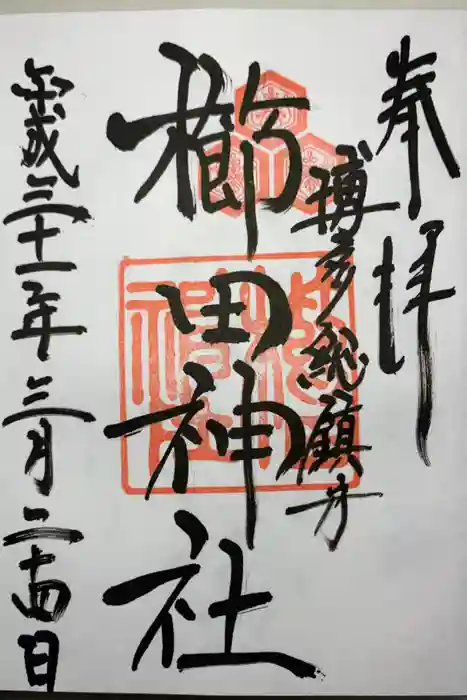 奉拝
博多総鎮守
櫛田神社
平成三十一年三月二十四日